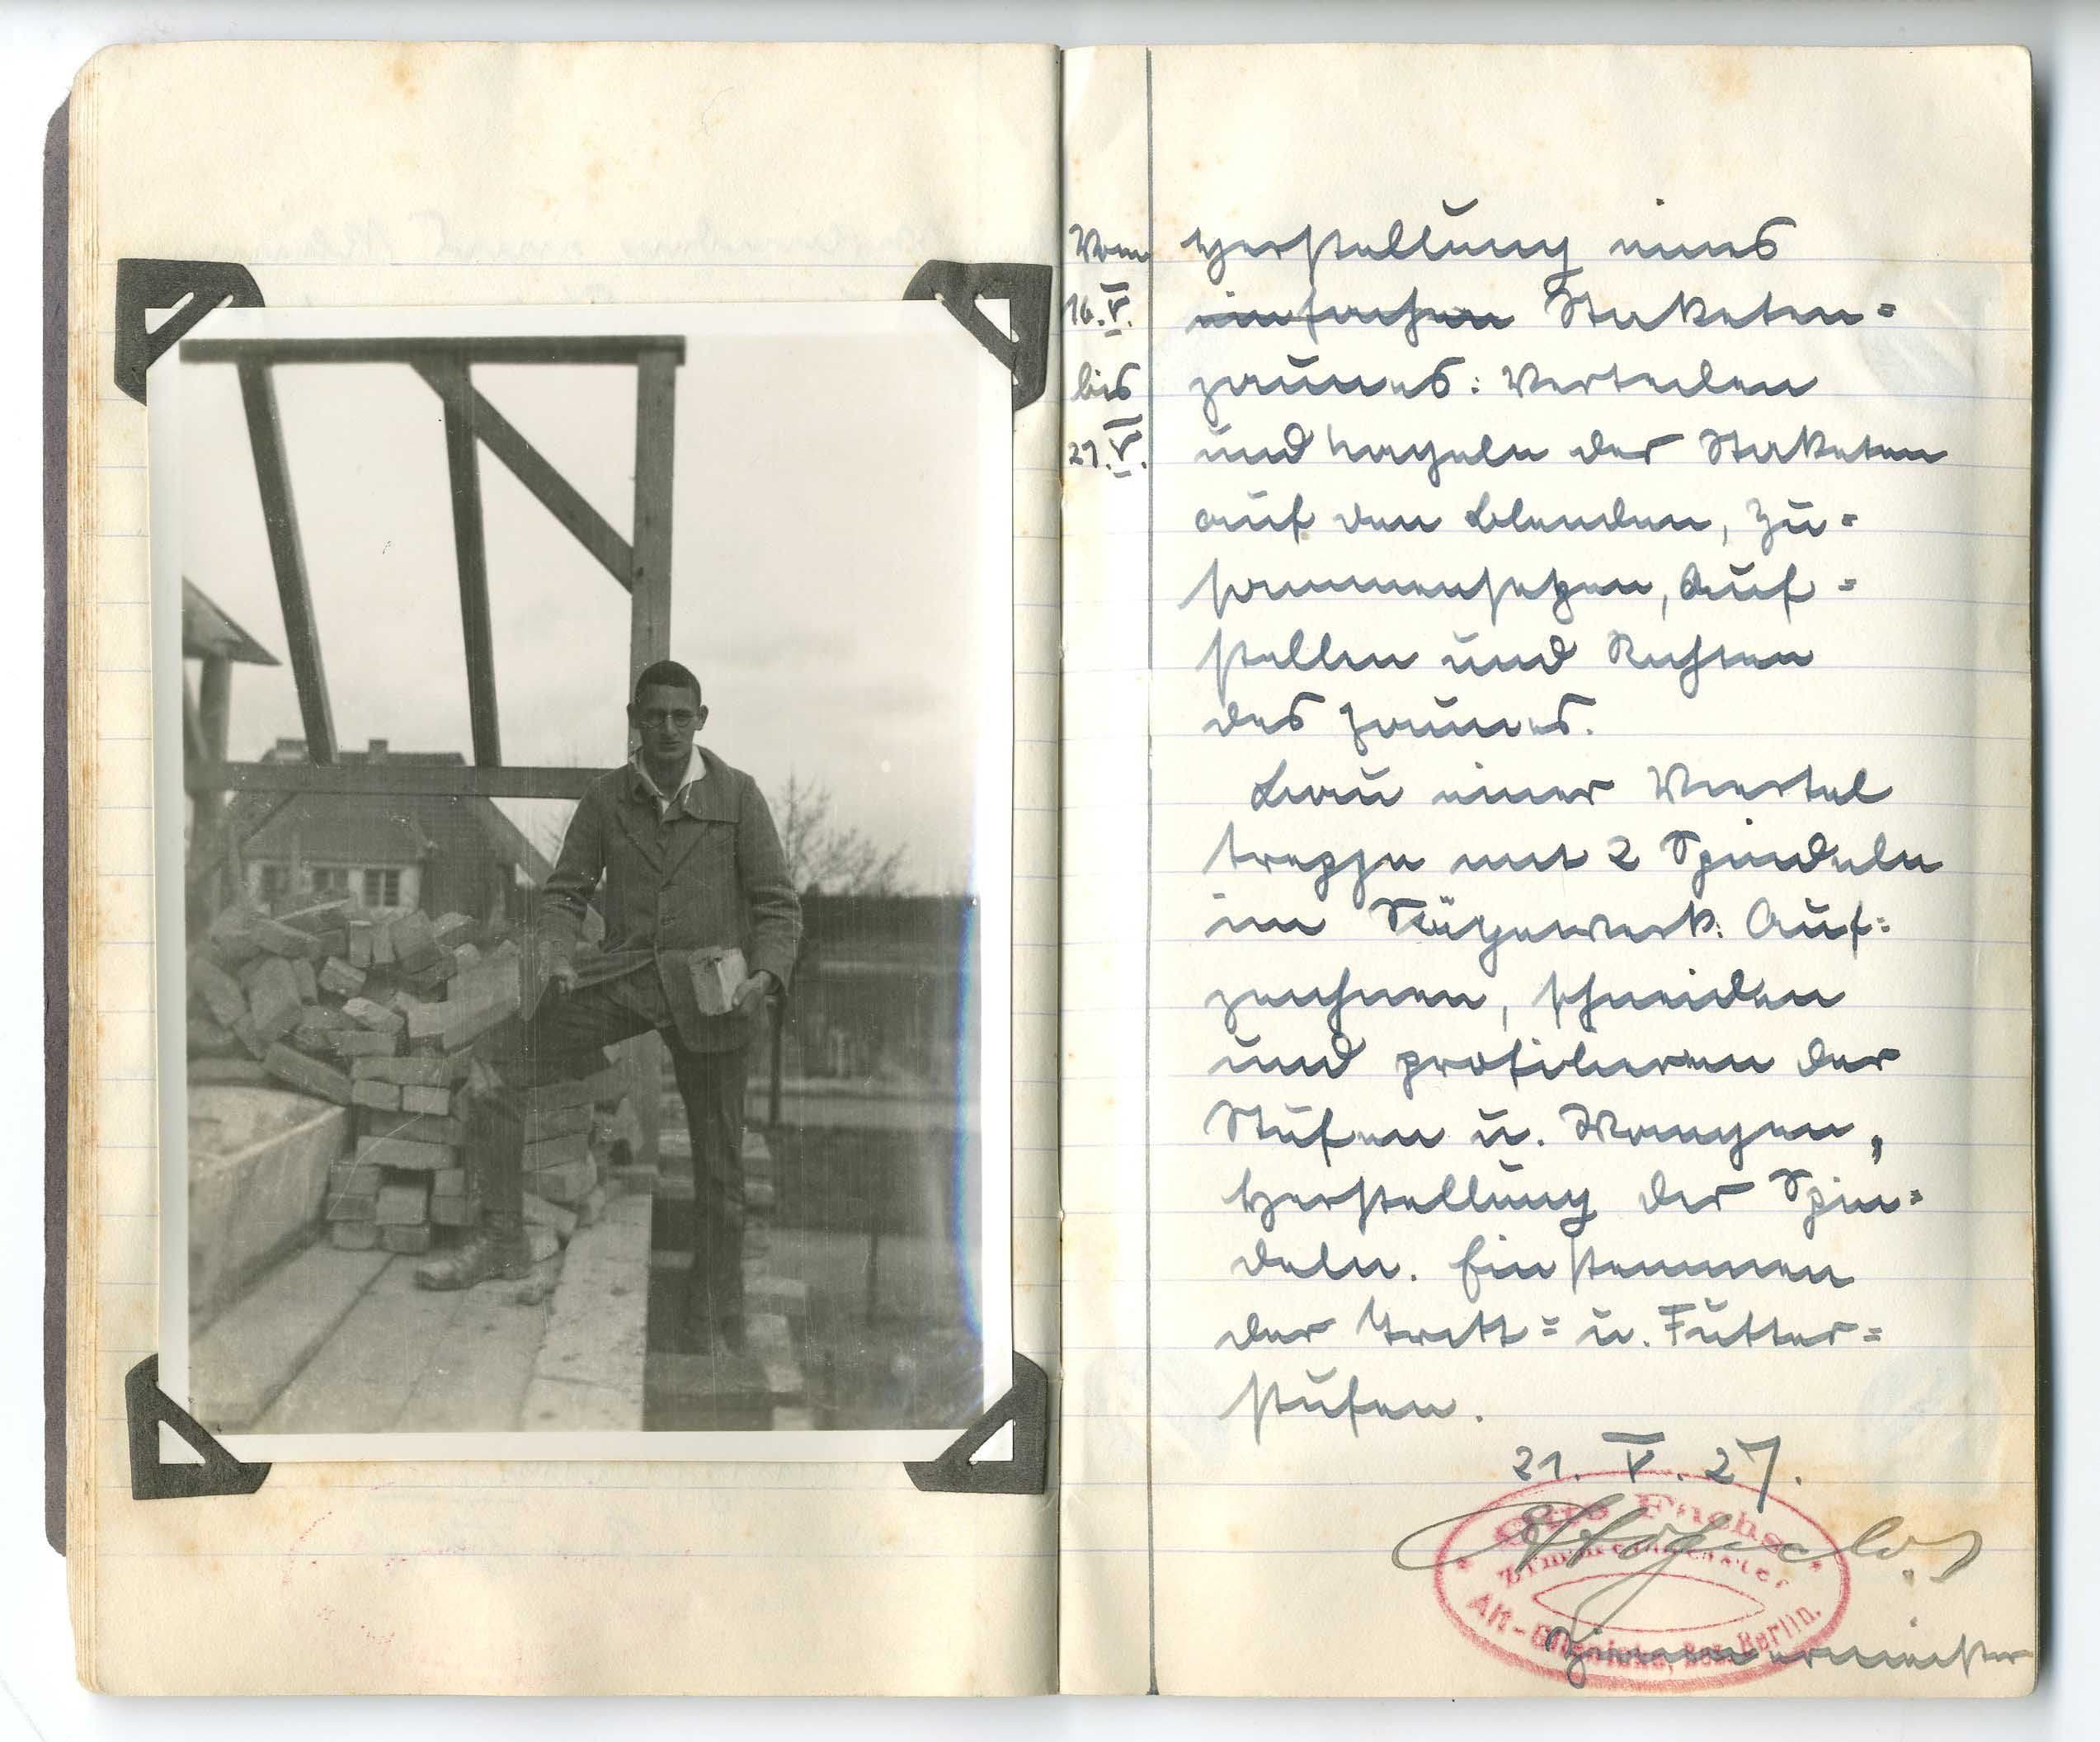 Vom
16.V.
bis
21.V.
Herstellung eines
einfachen Staketen=
zaunes: Verteilen
und Nageln der Staketen
auf den Blenden, Zu=
sammensetzen, Auf=
stellen und Richten
des Zaunes.
Bau einer Viertel
treppe mit 2 Spindeln
im Sägewerk: Auf=
zeichnen, schneiden
und profilieren der
Stufen u. Wangen,
Herstellung der Spin=
deln. Einstemmen
der Tritt= u. Futter=
stufen.
21. V. 27.
Otto Fuchs
Zimmermeister
Alt-Glienicke, Bez. Berlin.
Zimmermeister